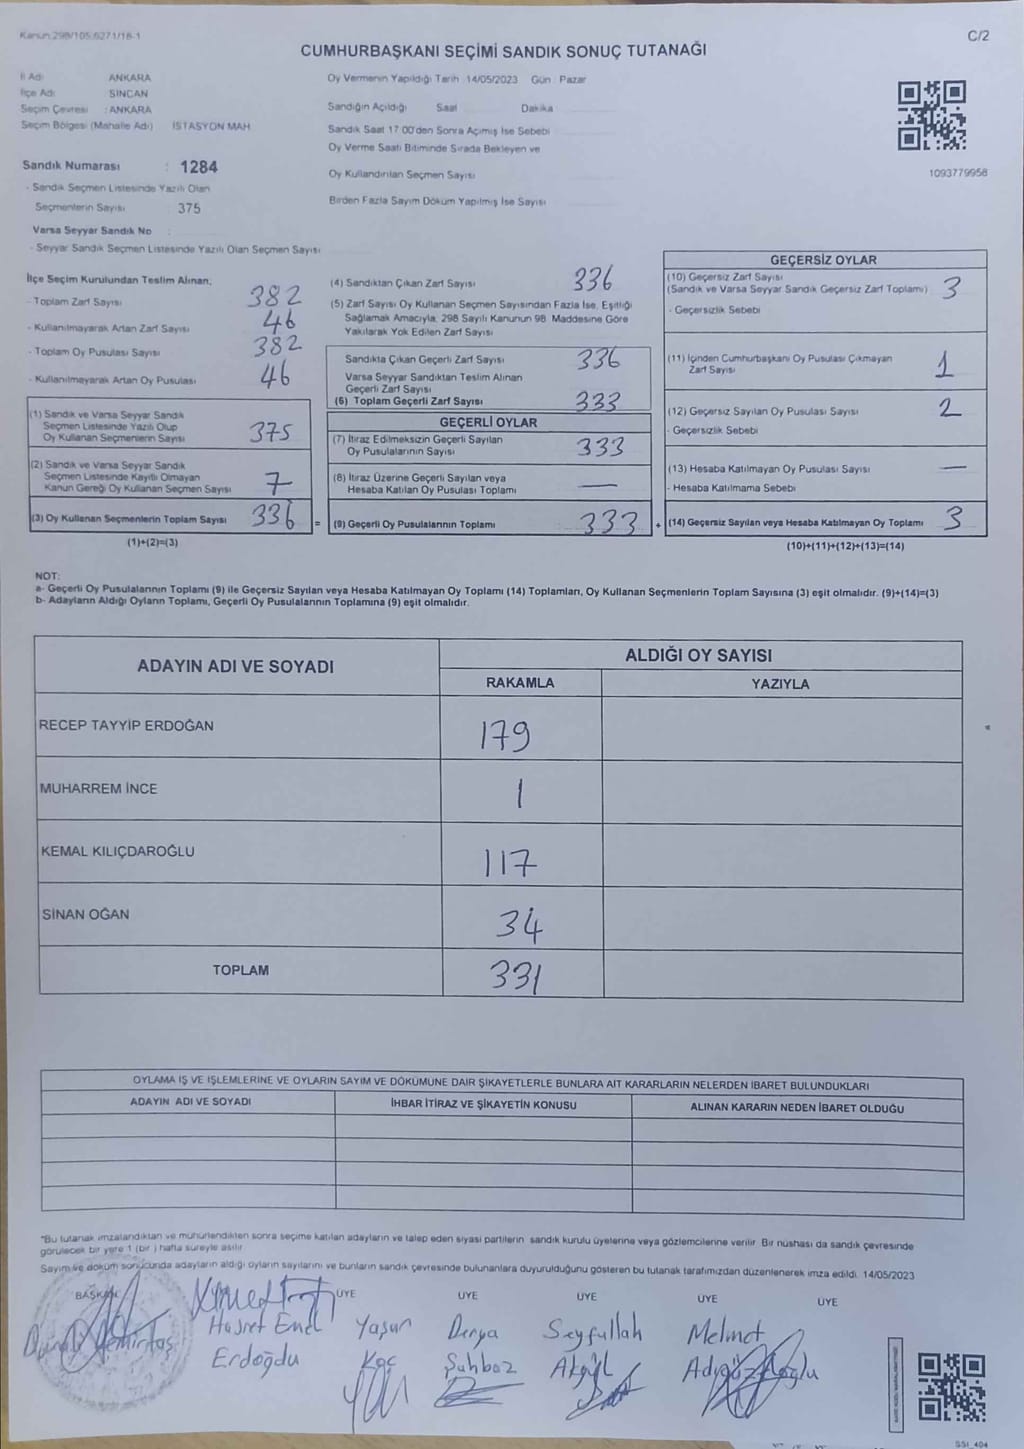 Kanun:298/105,6271/18-1
C/2
CUMHURBAŞKANI SEÇİMİ SANDIK SONUÇ TUTANAĞI
İl Adı : ANKARA
İlçe Adı : SİNCAN
Seçim Çevresi : ANKARA
Seçim Bölgesi (Mahalle Adı) İSTASYON MAH.
Sandık Numarası : 1284
- Sandık Seçmen Listesinde Yazılı Olan
Seçmenlerin Sayısı : 375
Varsa Seyyar Sandık No :
- Seyyar Sandık Seçmen Listesinde Yazılı Olan Seçmen Sayısı
Oy Vermenin Yapıldığı Tarih :14/05/2023 Gün : Pazar
Sandığın Açıldığı Saat Dakika
Sandık Saat 17:00'den Sonra Açımış İse Sebebi
Oy Verme Saati Bitiminde Sırada Bekleyen ve
Oy Kullandırılan Seçmen Sayısı
Birden Fazla Sayım Döküm Yapılmış İse Sayısı
1093779958
İlçe Seçim Kurulundan Teslim Alınan;
- Toplam Zarf Sayısı 382
- Kullanılmayarak Artan Zarf Sayısı 46
- Toplam Oy Pusulası Sayısı 382
- Kullanılmayarak Artan Oy Pusulası 46
(1) Sandık ve Varsa Seyyar Sandık
Seçmen Listesinde Yazılı Olup
Oy Kullanan Seçmenlerin Sayısı 375
(2) Sandık ve Varsa Seyyar Sandık
Seçmen Listesinde Kayıtlı Olmayan
Kanun Gereği Oy Kullanan Seçmen Sayısı 7
(3) Oy Kullanan Seçmenlerin Toplam Sayısı 336
(1)+(2)=(3)
(4) Sandıktan Çıkan Zarf Sayısı 336
(5) Zarf Sayısı Oy Kullanan Seçmen Sayısından Fazla İse, Eşitliği
Sağlamak Amacıyla, 298 Sayılı Kanunun 98. Maddesine Göre
Yakılarak Yok Edilen Zarf Sayısı
Sandıkta Çıkan Geçerli Zarf Sayısı 336
Varsa Seyyar Sandıktan Teslim Alınan
Geçerli Zarf Sayısı
(6) Toplam Geçerli Zarf Sayısı 333
GEÇERLİ OYLAR
(7) İtiraz Edilmeksizin Geçerli Sayılan
Oy Pusulalarının Sayısı 333
(8) İtiraz Üzerine Geçerli Sayılan veya
Hesaba Katılan Oy Pusulası Toplamı —
= (9) Geçerli Oy Pusulalarının Toplamı 333
GEÇERSİZ OYLAR
(10) Geçersiz Zarf Sayısı
(Sandık ve Varsa Seyyar Sandık Geçersiz Zarf Toplamı) 3
- Geçersizlik Sebebi
(11) İçinden Cumhurbaşkanı Oy Pusulası Çıkmayan
Zarf Sayısı 1
(12) Geçersiz Sayılan Oy Pusulası Sayısı 2
- Geçersizlik Sebebi
(13) Hesaba Katılmayan Oy Pusulası Sayısı —
- Hesaba Katılmama Sebebi
+ (14) Geçersiz Sayılan veya Hesaba Katılmayan Oy Toplamı 3
(10)+(11)+(12)+(13)=(14)
NOT:
a- Geçerli Oy Pusulalarının Toplamı (9) ile Geçersiz Sayılan veya Hesaba Katılmayan Oy Toplamı (14) Toplamları, Oy Kullanan Seçmenlerin Toplam Sayısına (3) eşit olmalıdır. (9)+(14)=(3)
b- Adayların Aldığı Oyların Toplamı, Geçerli Oy Pusulalarının Toplamına (9) eşit olmalıdır.
ADAYIN ADI VE SOYADI
ALDIĞI OY SAYISI
RAKAMLA YAZIYLA
RECEP TAYYİP ERDOĞAN 179
MUHARREM İNCE 1
KEMAL KILIÇDAROĞLU 117
SİNAN OĞAN 34
TOPLAM 331
OYLAMA İŞ VE İŞLEMLERİNE VE OYLARIN SAYIM VE DÖKÜMÜNE DAİR ŞİKAYETLERLE BUNLARA AİT KARARLARIN NELERDEN İBARET BULUNDUKLARI
ADAYIN ADI VE SOYADI İHBAR İTİRAZ VE ŞİKAYETİN KONUSU ALINAN KARARIN NEDEN İBARET OLDUĞU
*Bu tutanak imzalandıktan ve mühürlendikten sonra seçime katılan adayların ve talep eden siyasi partilerin sandık kurulu üyelerine veya gözlemcilerine verilir. Bir nüshası da sandık çevresinde
görülecek bir yere 1 (bir ) hafta süreyle asılır.
Sayım ve döküm sonucunda adayların aldığı oyların sayılarını ve bunların sandık çevresinde bulunanlara duyurulduğunu gösteren bu tutanak tarafımızdan düzenlenerek imza edildi. 14/05/2023
BAŞKAN ÜYE ÜYE ÜYE ÜYE ÜYE
Yaşar Derya Seyfullah Mehmet
Erdoğdu Koç Şahbaz Akgül